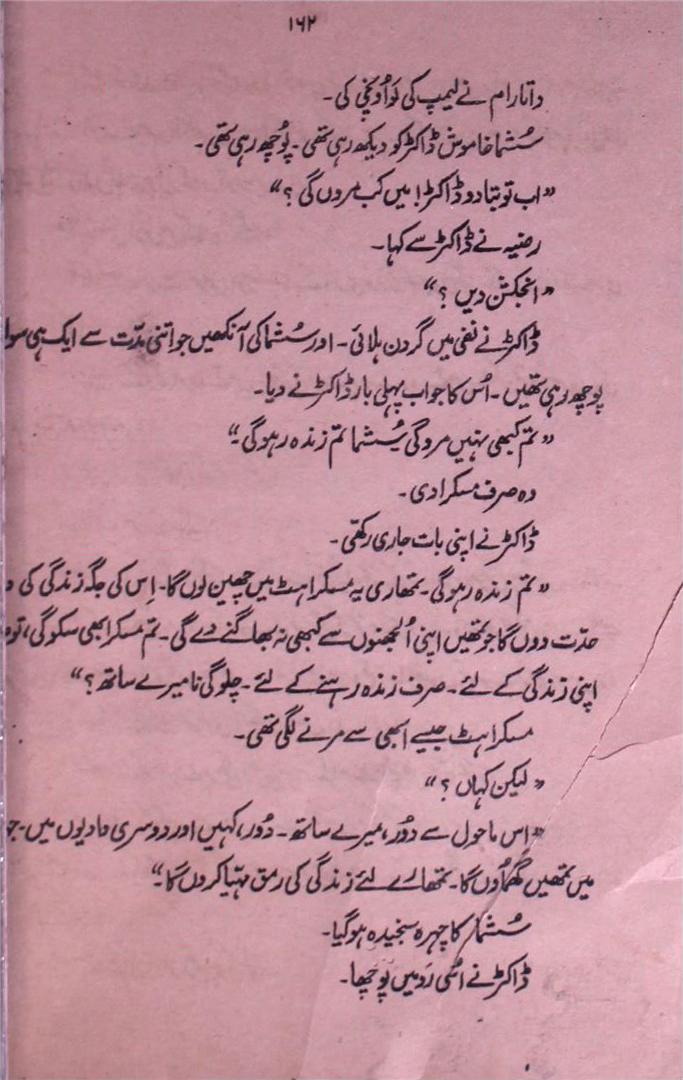 ۱۶۲
داتارام نے لیمپ کی لَو اُونچی کی۔
سُشما خاموش ڈاکٹر کو دیکھ رہی تھی۔ پُوچھ رہی تھی۔
"اب تو بتا دو ڈاکٹر! میں کب مروں گی؟"
رضیہ نے ڈاکٹر سے کہا۔
"انجکشن دیں؟"
ڈاکٹر نے نفی میں گردن ہلائی۔ اور سُشما کی آنکھیں جو اتنی مدّت سے ایک ہی
پوچھ رہی تھیں۔ اُس کا جواب پہلی بار ڈاکٹر نے دیا۔
"تم کبھی نہیں مرو گی سُشما تم زندہ رہو گی۔"
وہ صرف مسکرا دی۔
ڈاکٹر نے اپنی بات جاری رکھّی۔
"تم زندہ رہو گی۔ تمھاری یہ مسکراہٹ میں چھین لوں گا۔ اِس کی جگہ زندگی کی
حدّت دوں گا جو تمھیں اپنی اُلجھنوں سے کبھی نہ بھاگنے دے گی۔ تم مسکرا بھی سکو گی، تو
اپنی زندگی کے لئے۔ صرف زندہ رہنے کے لئے۔ چلو گی نا میرے ساتھ؟"
مسکراہٹ جیسے ابھی سے مرنے لگی تھی۔
"لیکن کہاں؟"
"اِس ماحول سے دُور، میرے ساتھ۔ دُور، کہیں اور دوسری وادیوں میں۔ جو
میں تمھیں گھماؤں گا۔ تمھارے لئے زندگی کی رمق مہیّا کر دوں گا۔"
سُشما کا چہرہ سنجیدہ ہو گیا۔
ڈاکٹر نے اسُی رَو میں پوَچھا۔